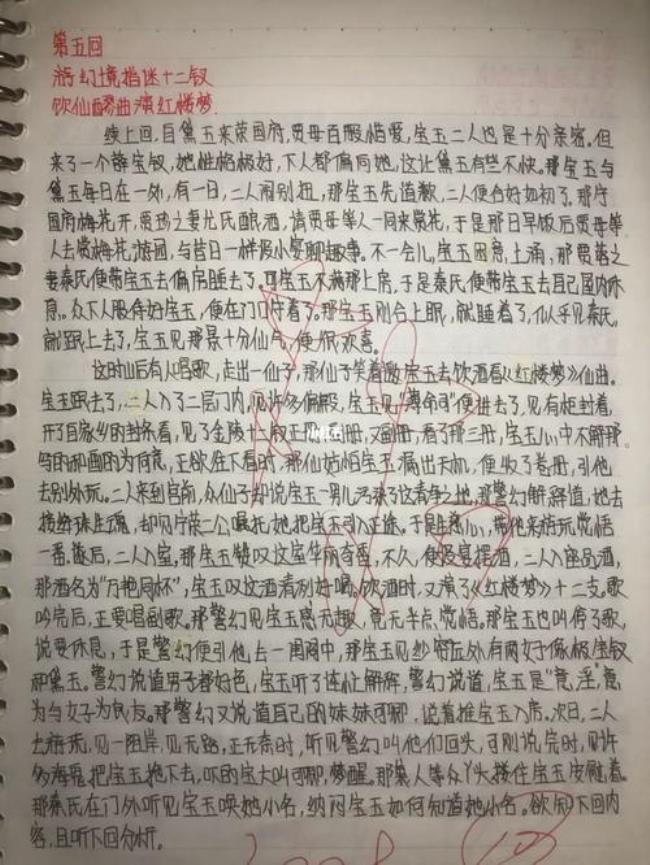 第五回
游幻境指迷十二钗
饮仙醪曲演红楼梦
续上回,自黛玉来荣国府,贾母百般怜爱,宝玉二人也是十分亲密。但
来了一个薛宝钗,她性格极好,下人都偏向她,这让黛玉有些不快。那宝玉与
黛玉每日在一处,有一日,二人闹别扭,那宝玉先道歉,二人便合好如初了。那宁
国府梅花开,贾珍之妻尤氏酿酒,请贾母等人一同来赏花,于是那日早饭后贾母等
人去赏梅花,游园,与昔日一样般小宴聊趣事。不一会儿,宝玉困意上涌,那贾蓉之
妻秦氏便带宝玉去偏房睡去了。可宝玉不满那上房,于是秦氏便带宝玉去自己屋内休
息。众下人服侍好宝玉,便在门口守着了。那宝玉刚合上眼,就睡着了,似乎见秦氏,
就跟上去了,宝玉见那景十分仙气,便很欢喜。
这时山后有人唱歌,走出一仙子,那仙子笑着邀宝玉去饮酒看《红楼梦》仙曲。
宝玉跟去了,二人入了二层门内,见许多偏殿,宝玉见"薄命司"便进去了,见有柜封着,
开了自家乡的封条看,见了金陵十二钗正册,副册,又副册,看了那三册,宝玉心中不解那
写的和画的为何意,正欲往下看时,那仙姑怕宝玉漏出天机,便收了卷册,引他
去别处玩。二人来到宫前,众仙子却说宝玉一男儿污染了这清净之地,那警幻解释道,她去
接绛珠生魂,却见宁荣二公嘱托她把宝玉引入正途。于是慈心,带他来游玩觉悟
一番。随后,二人入室,那宝玉赞叹这室华丽奇香,不久,便设宴摆酒,二人入座品酒,
那酒名为"万艳同杯",宝玉叹这酒清冽好喝。饮酒时,又演了《红楼梦》十二支,歌
吟完后,正要唱副歌。那警幻见宝玉感无趣,竟无半点觉悟。那宝玉也叫停了歌,
说要休息,于是警幻便引他去一闺阁中,那宝玉见纱帘丘外有两女好像极宝钗
和黛玉。警幻说道男子都好色,宝玉听了连忙解释,警幻说道,宝玉是"意淫",意
为与女子为良友。那警幻又说道自己的妹妹可卿,说着推宝玉入房。次日,二人
去游玩,见一阻岸,见无路,正无奈时,听见警幻叫他们回头,可刚说完时,见许
多海鬼把宝玉拖下去,吓的宝玉大叫可卿,梦醒。那袭人等众丫头搂住宝玉安慰着。
那秦氏在门外听见宝玉唤她小名,纳闷宝玉如何知道她小名。欲知下回内
容,且听下回分析。